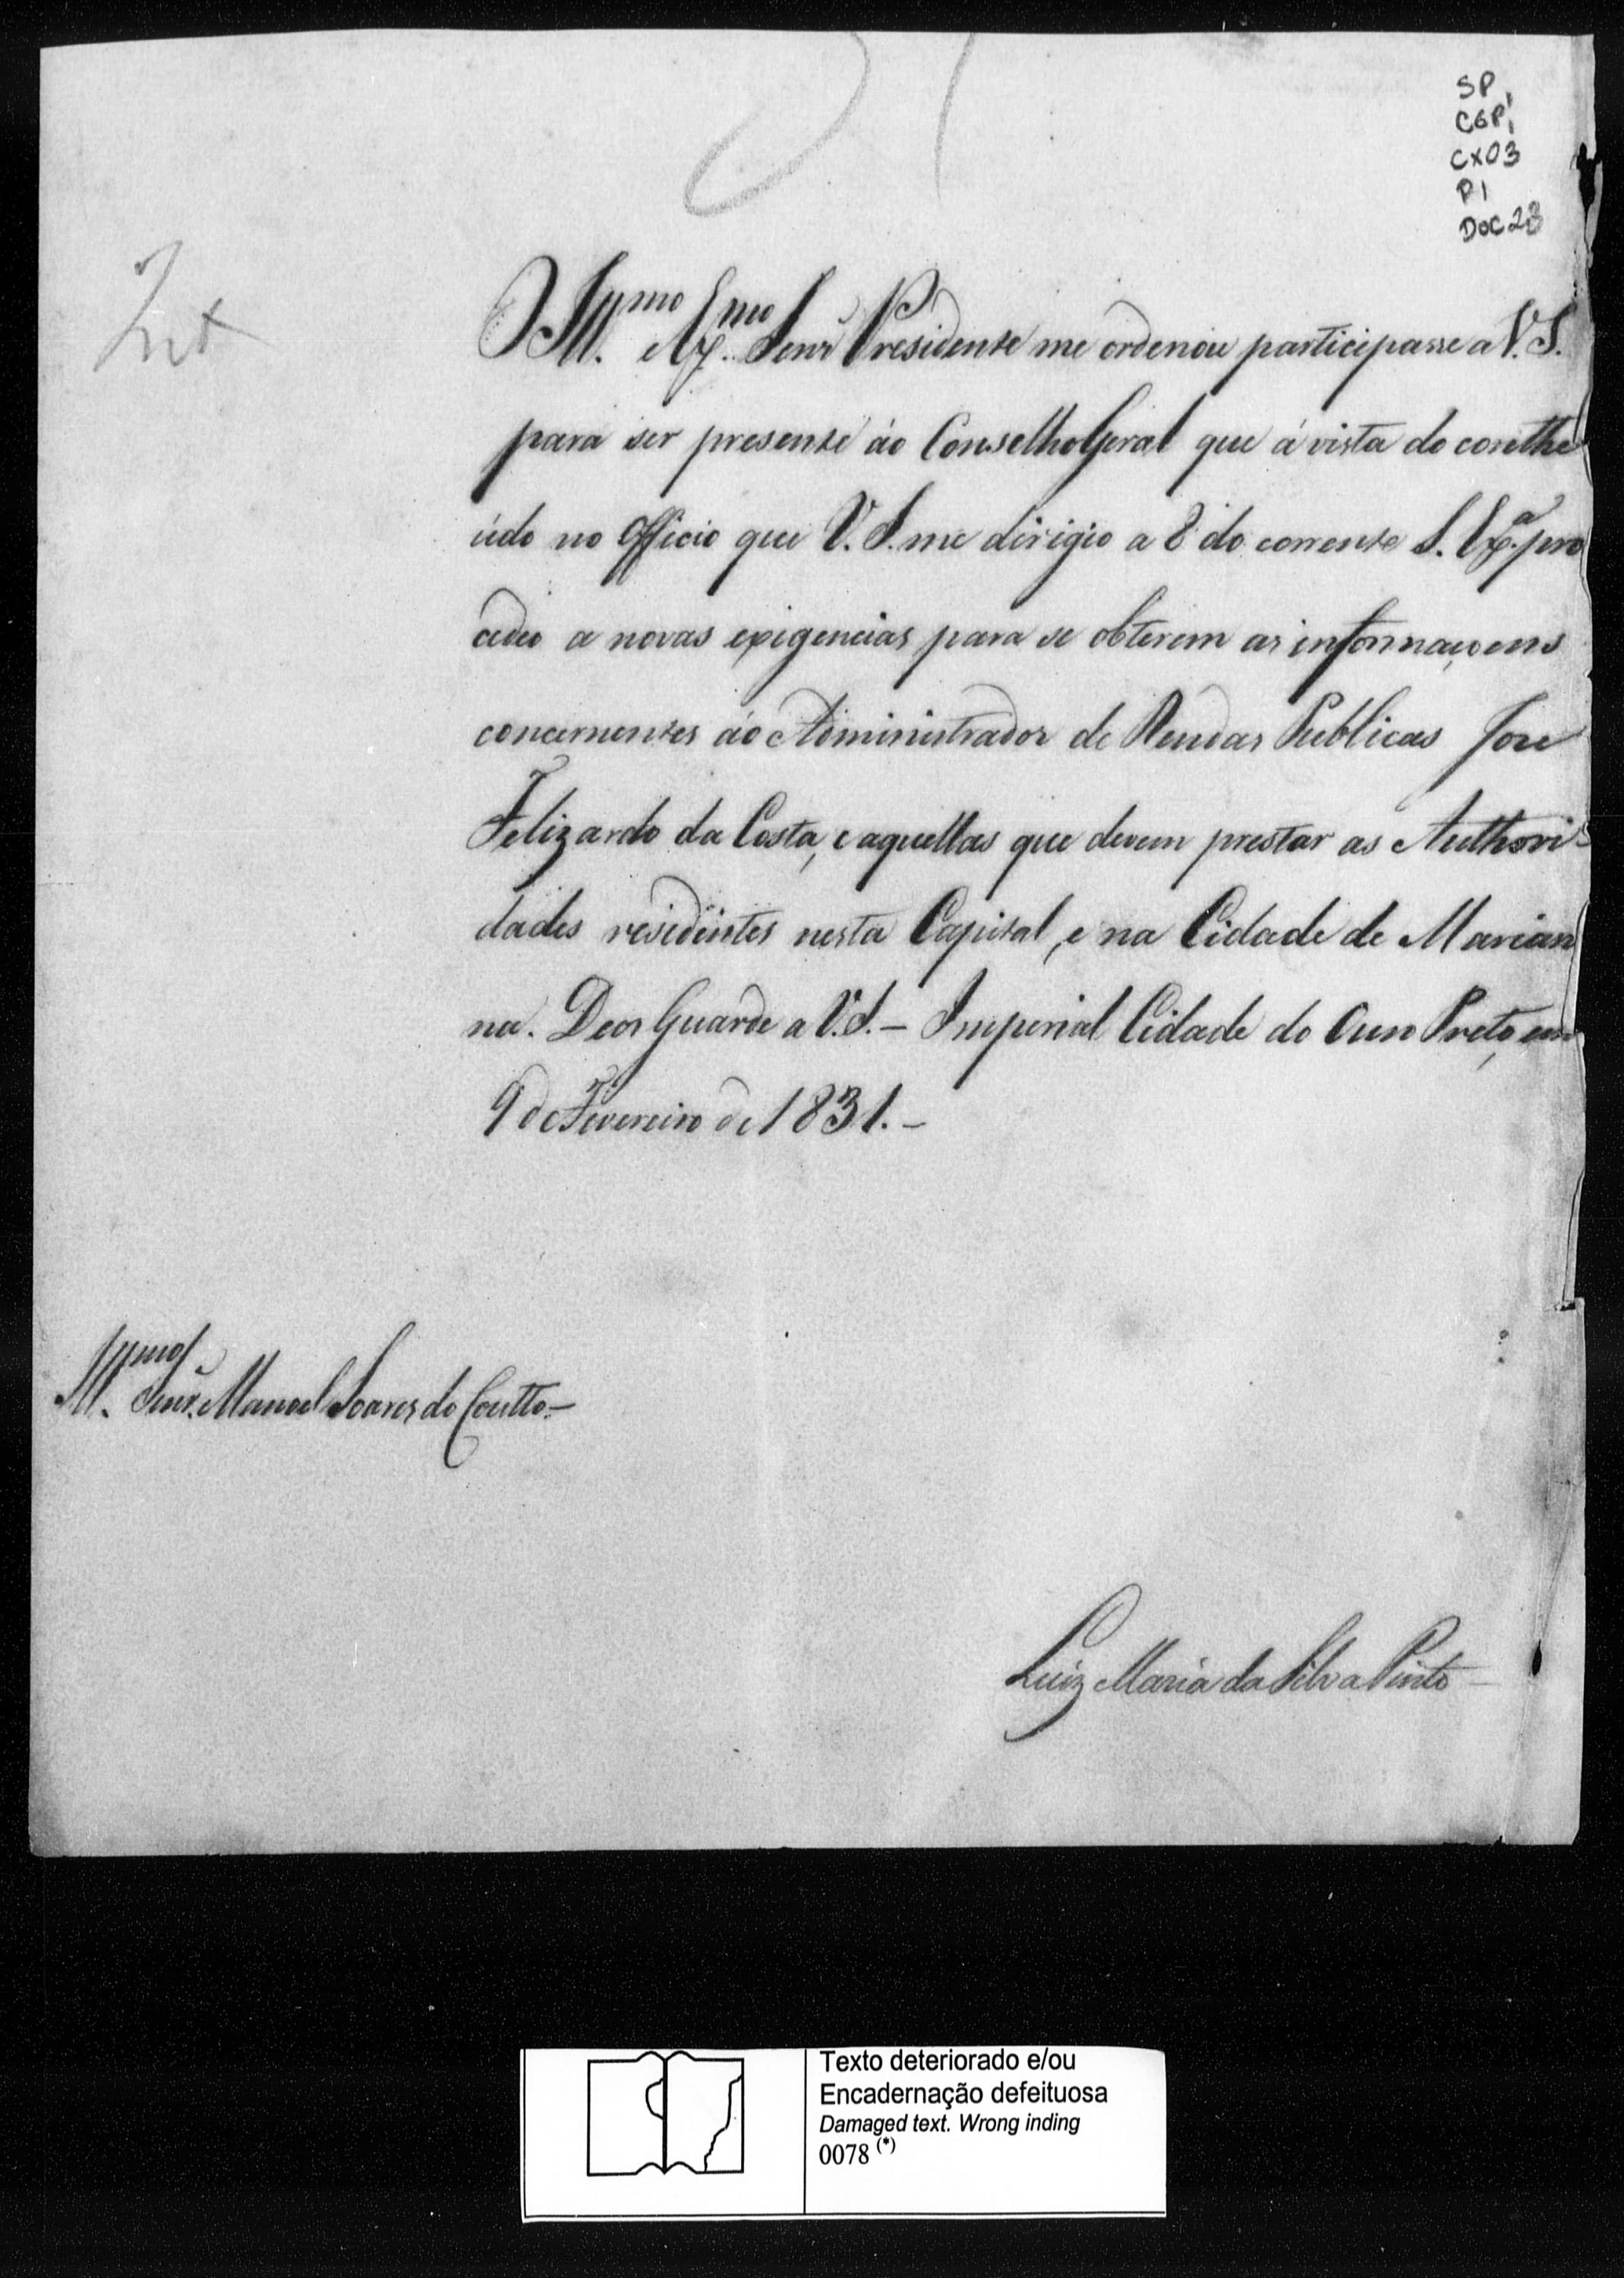 SP,
CGP,
CX03
P1
DOC 23
Int
O Ill.mo e Ex.mo Senr Presidente me ordenou participasse a V.S.
para ser presente áo Conselho Geral que á vista do conthe
údo no Officio que V.S. me dirigio a 8 do corrente S. Ex.ª pro
cedeo a novas exigencias para se obterem as informaçoens
concernentes áo Administrador de Rendas Publicas Jose
Felizardo da Costa, e aquellas que devem prestar as Authori-
dades residentes nesta Capital, e na Cidade de Marian
na. Deos Guarde a V.S. - Imperial Cidade do Ouro Preto, em
9 de Fevereiro de 1831. -
Ill.mo Senr. Manoel Soares do Coutto -
Luiz Maria da Silva Pinto -
Texto deteriorado e/ou
Encadernação defeituosa
Damaged text. Wrong inding
0078 (*)